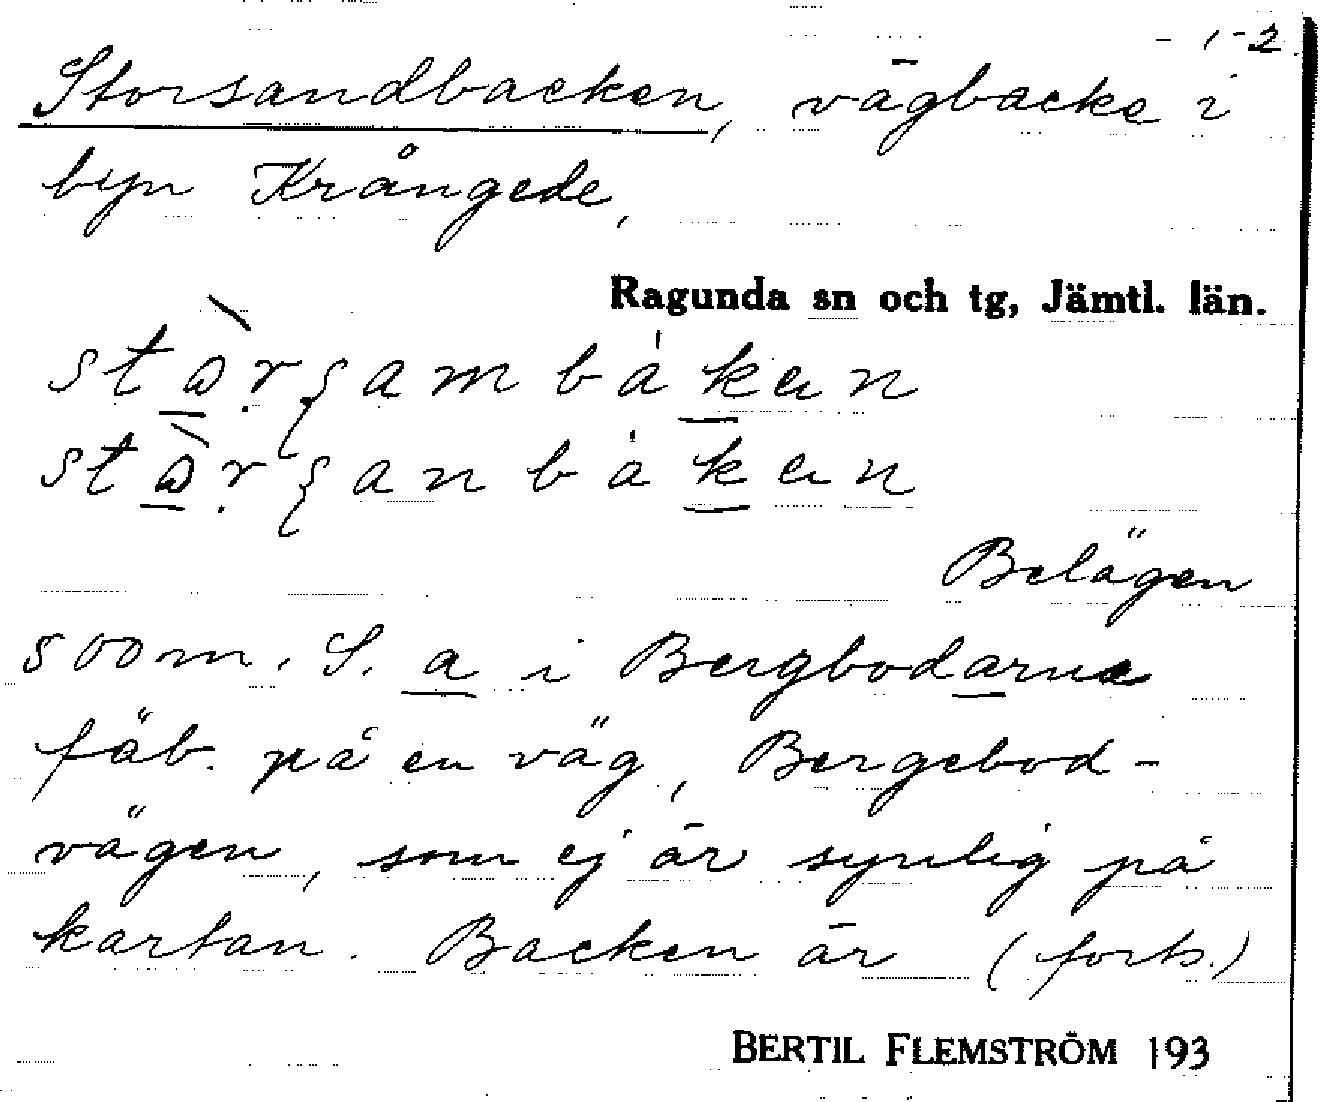 - 1-2.
Storsandbacken, vägbacke i
byn Krångede,
Ragunda sn och tg, Jämtl. län.
Belägen
500 m. S. a i Bergbodarne
fäb. på en väg, Bergebod-
vägen, som ej är synlig på
kartan. Backen är (forts.)
BERTIL FLEMSTRÖM 193